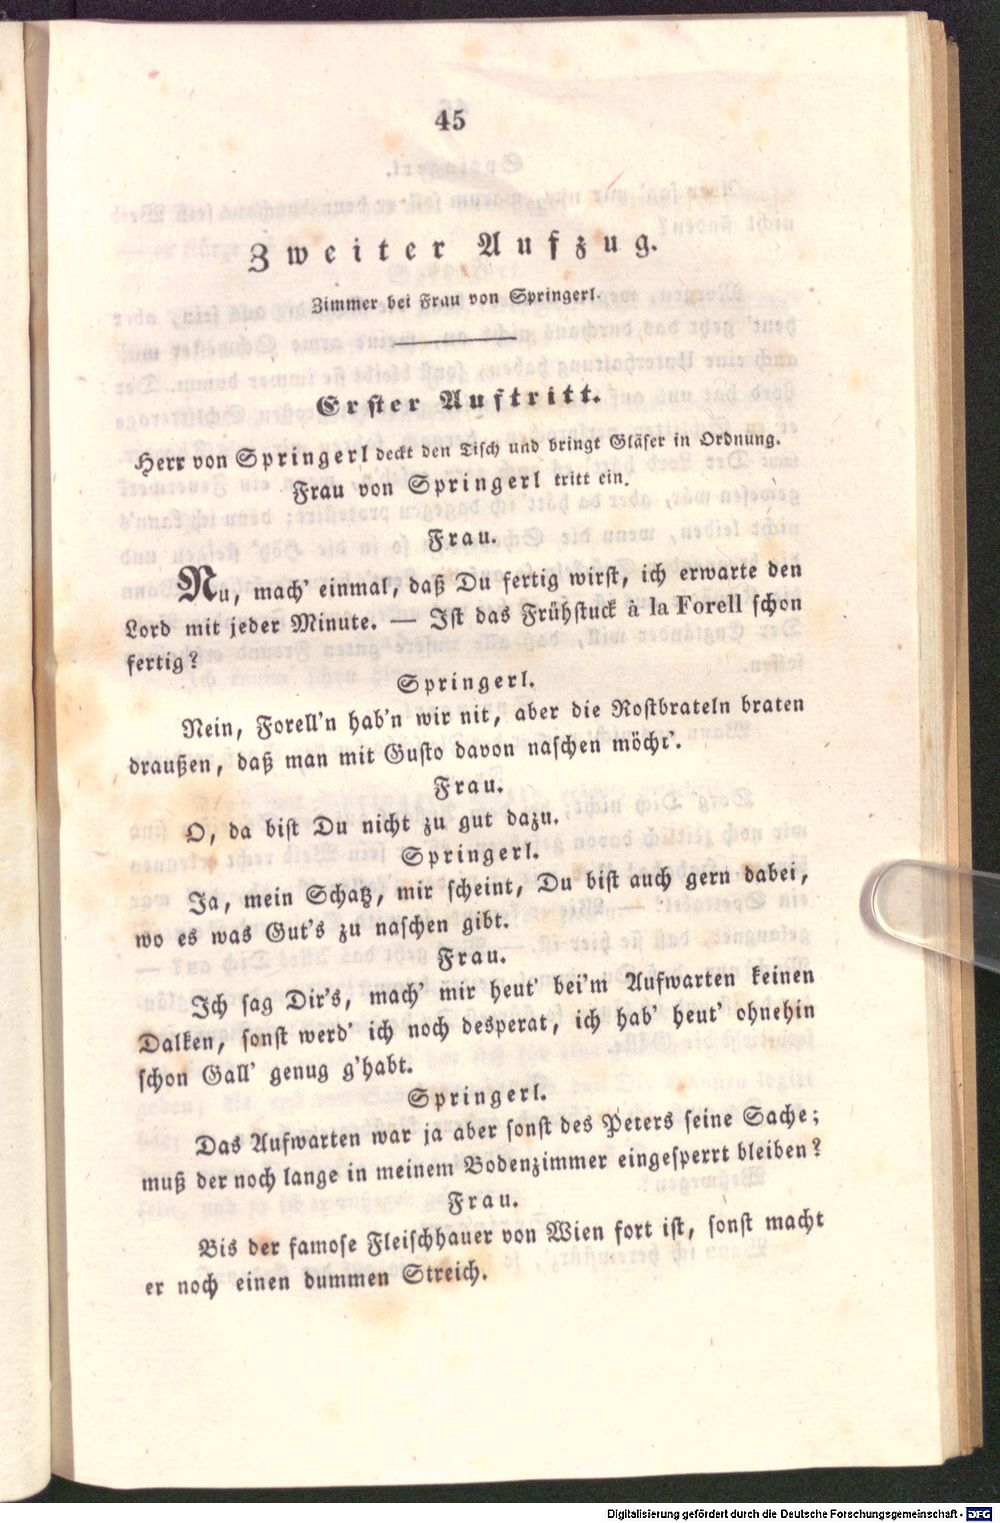 45
Zweiter Aufzug.
Zimmer bei Frau von Springerl.
Erster Auftritt.
Herr von Springerl deckt den Tisch und bringt Gläser in Ordnung.
Frau von Springerl tritt ein.
Frau.
Nu, mach' einmal, daß Du fertig wirst, ich erwarte den
Lord mit jeder Minute. — Ist das Frühstuck à la Forell schon
fertig?
Springerl.
Nein, Forell'n hab'n wir nit, aber die Rostbrateln braten
draußen, daß man mit Gusto davon naschen möcht'.
Frau.
O, da bist Du nicht zu gut dazu.
Springerl.
Ja, mein Schatz, mir scheint, Du bist auch gern dabei,
wo es was Gut's zu naschen gibt.
Frau.
Ich sag Dir's, mach' mir heut' bei'm Aufwarten keinen
Dalken, sonst werd' ich noch desperat, ich hab' heut' ohnehin
schon Gall' genug g'habt.
Springerl.
Das Aufwarten war ja aber sonst des Peters seine Sache;
muß der noch lange in meinem Bodenzimmer eingesperrt bleiben?
Frau.
Bis der famose Fleischhauer von Wien fort ist, sonst macht
er noch einen dummen Streich.
Digitalisierung gefördert durch die Deutsche Forschungsgemeinschaft - DFG